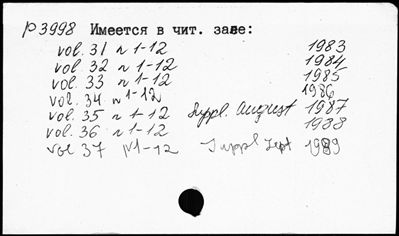 p3998 Имеется в чит. зале:
vol. 31 n 1-12 1983
vol. 32 n 1-12 1984
vol. 33 n 1-12 1985
vol. 34 n 1-12 1986
vol. 35 n 1-12 Suppl. August 1987
vol. 36 n 1-12 1988
vol 37 N1-12 Suppl Sept 1989